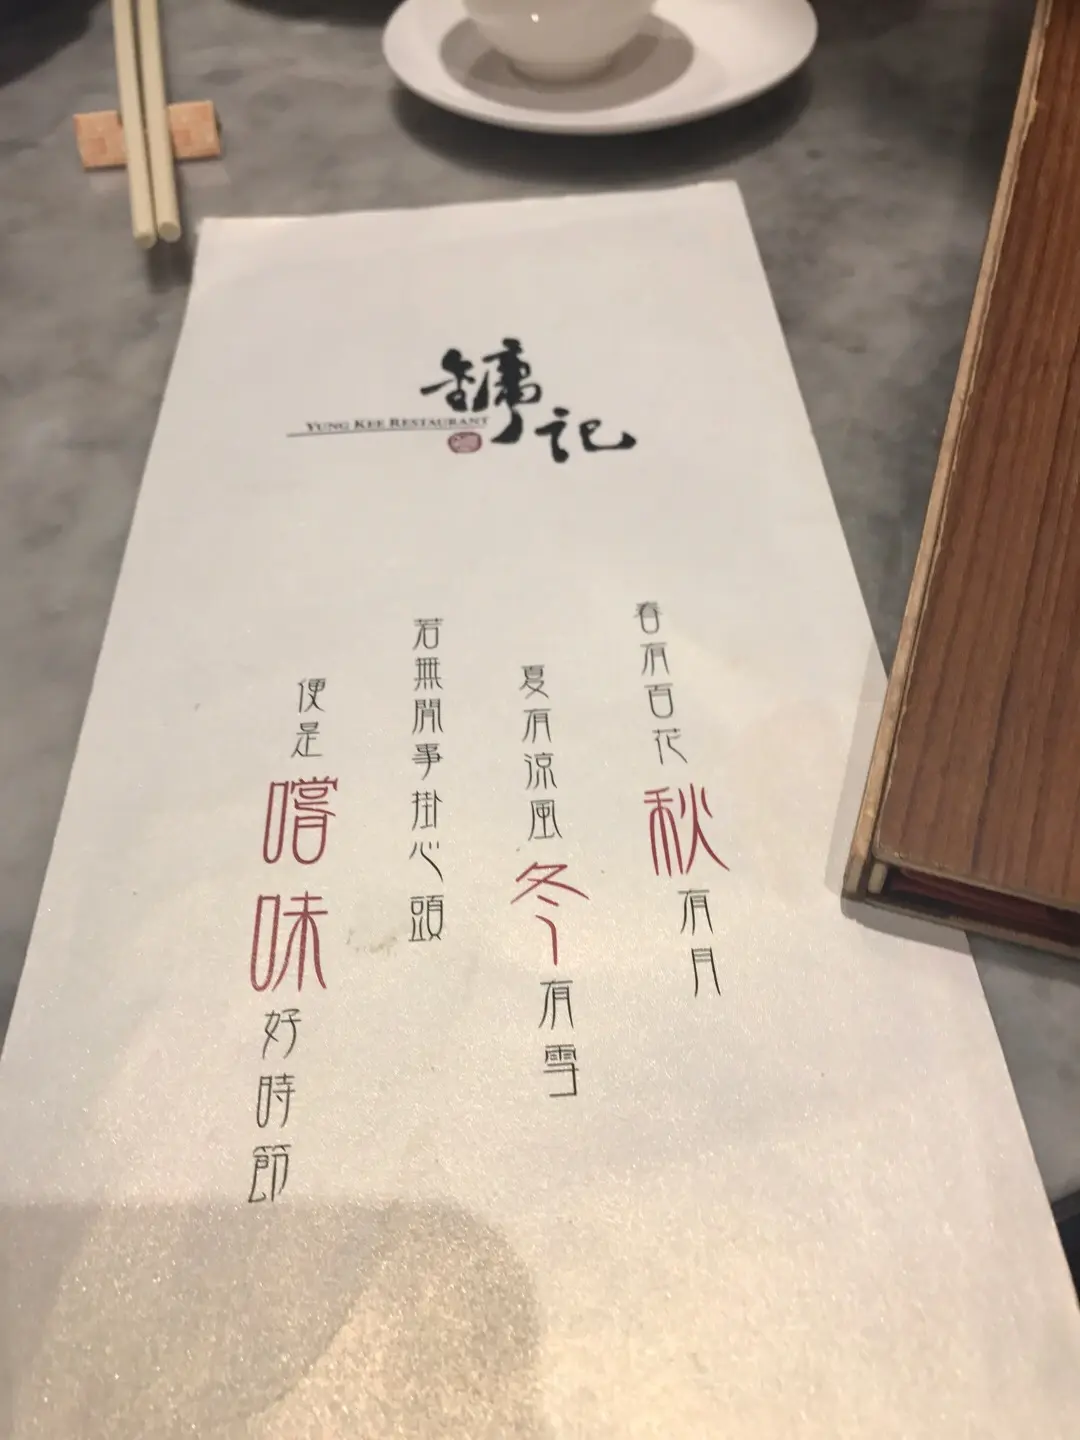 鏞記
YUNG KEE RESTAURANT
春有百花秋有月
夏有涼風冬有雪
若無閒事掛心頭
便是嚐味好時節